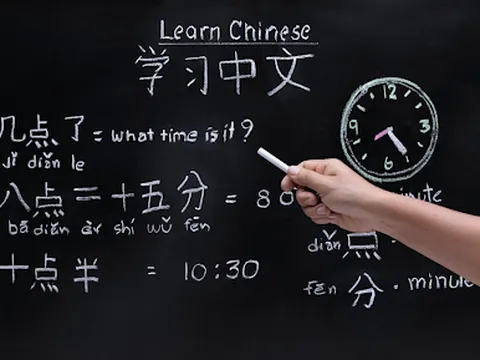 Learn Chinese
学习中文
几点了 = what time is it?
jǐ diǎn le
12
9 3
6
八点二十五分 = 8
bā diǎn èr shí wǔ fēn
diǎn 点 .
十点半 = 10:30
fēn 分 . minute